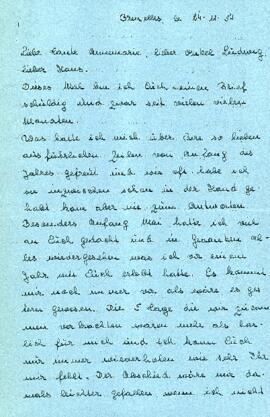 Bruxelles, le 24-11-52
Liebe Tante Annemarie, lieber Onkel Ludwig,
lieber Hans.
Dieses Mal bin ich Euch einen Brief
schuldig und zwar seit vielen vielen
Monaten.
Was hatte ich mich über Eure so lieben
ausführlichen Zeilen von Anfang des
Jahres gefreut und wie oft habe ich
sie inzwischen schon in der Hand ge-
habt kam aber nie zum Antworten.
Besonders Anfang Mai hatte ich viel
an Euch gedacht und in Gedanken al-
les wiedergesehen was ich vor einem
Jahr mit Euch erlebt hatte. Es kommt
mir noch immer vor als wäre es ges-
tern gewesen. Die 5 Tage die wir zusam-
men verbrachten waren mehr als herr-
lich für mich und ich kann Euch
nur immer wiederholen wie sehr Ihr
mir fehlt. Der Abschied wäre mir da-
mals leichter gefallen wenn ich nicht